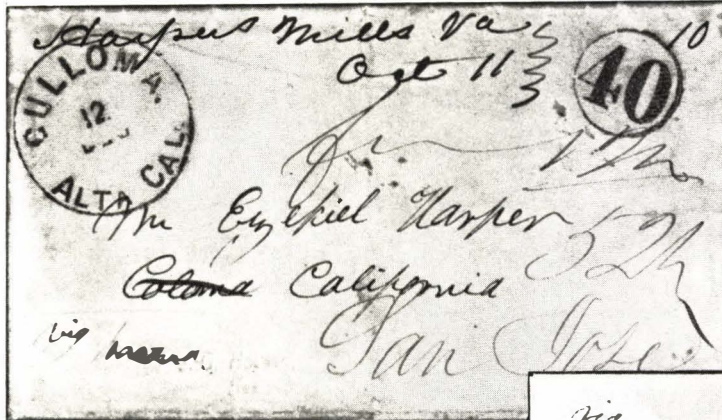 Harpers Mills Va
Oct 11
10
40
CULLOMA.
12
ALTA CAL.
Mr Ezekiel Harper
Coloma California
San Jose
via
via